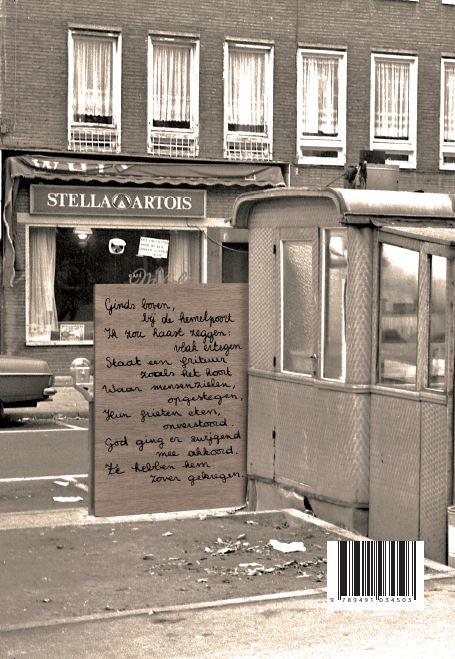 STELLA ARTOIS
Ginds boven,
bij de hemelpoort
Ik zou haast zeggen:
vlak ertegen
Staat een frituur
zoals het hoort
Waar mensenzielen,
opgestegen,
Hun frieten eten,
onverstoord.
God ging er zwijgend
mee akkoord.
Ze hebben hem
zover gekregen.
9 789491 034503